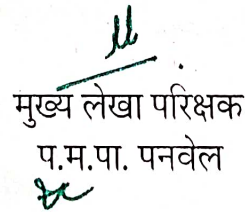 मुख्य लेखा परिक्षक
प.म.पा. पनवेल